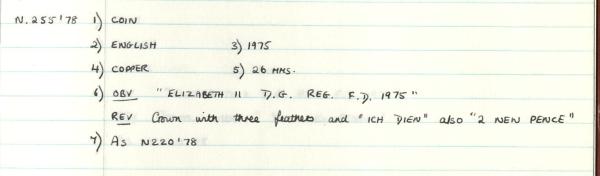 N.255'78 1) COIN
2) ENGLISH 3) 1975
4) COPPER 5) 26 MMS.
6) OBV "ELIZABETH II D.G. REG. F.D. 1975"
REV Crown with three feathers and "ICH DIEN" also "2 NEW PENCE"
7) AS N220'78